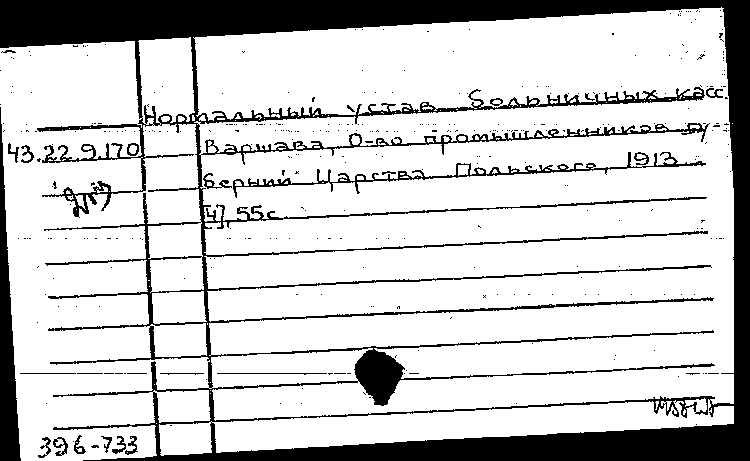 Нормальный устав больничных касс.
43.22.9.170 Варшава, О-во промышленников гу-
берний Царства Польского, 1913
[4], 55с
396-733